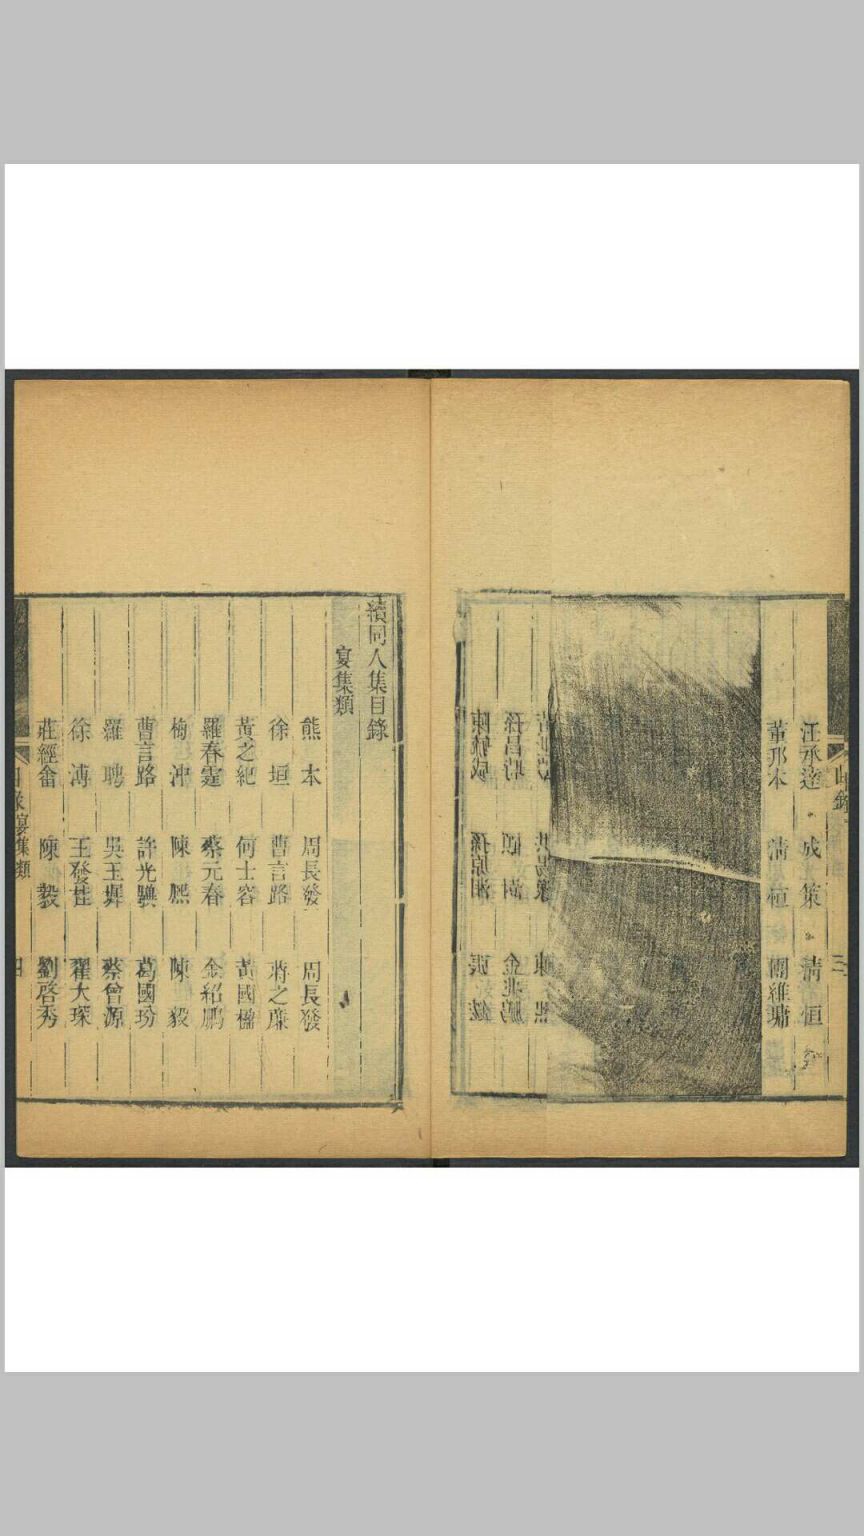 汪承逵 成策 清恒
董邢本 清恒 團維墉
目錄
三
續同人集目錄
宴集類
熊本 周長發 周長發
徐垣 曹言路 蔣之廉
黃之紀 何士容 黃國楹
羅春霆 蔡元春 金紹鵬
梅沖 陳熙 陳毅
曹言路 許光驥 葛國玢
羅聘 吳玉墀 蔡曾源
徐溥 王發桂 翟大琛
莊經畬 陳毅 劉啓秀
目錄 宴集類
四